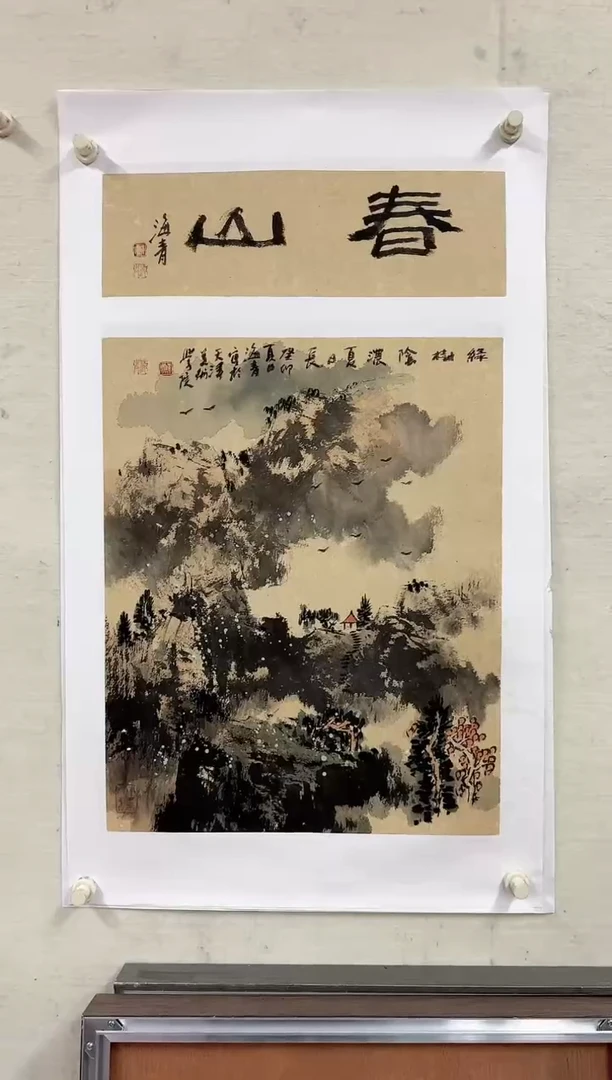 春山
海青
綠樹陰濃夏日長
癸卯
夏日
海青
寫於
天津
美術
學院